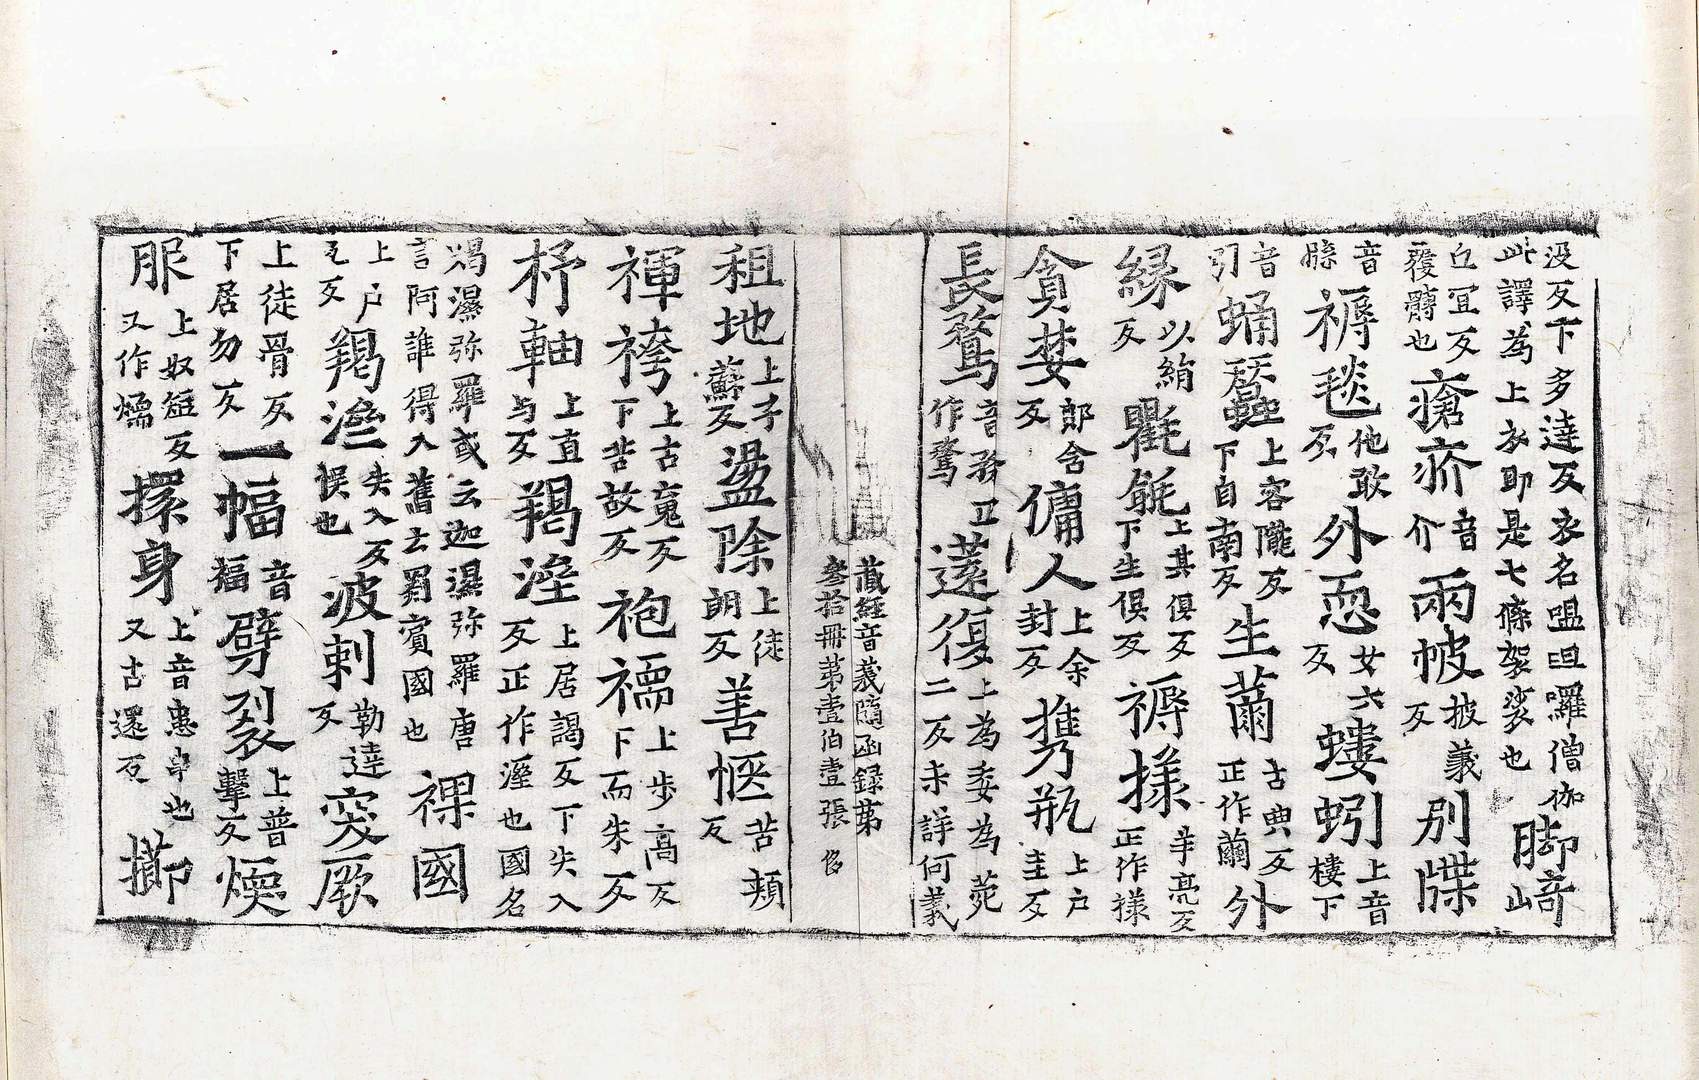 没反下多達反衣名嗢呾囉僧伽
此譯爲上衣即是七條袈裟也 脚崎山
宜反覆髆也 瘡疥音介 兩帔披義反 別牒
音牒 褥毯他敢反 外恧女六反 螻蚓上音樓下
音引 蛹蠶上容隴反下自南反 生薾古典反正作繭 外
緣以絹反 氍毹上其俱反下生俱反 褥㨾羊亮反正作樣
貪婪郎含反 傭人上余封反 携瓶上户圭反
長鶩音務又作騖 薳復上為委為菀二反未詳何義
藏經音義隨函録第
叁拾冊第壹伯壹張 侈
租地上子蘇反 盪除上徒朗反 善愜苦頰反
褌袴上古䰟反下苦故反 袍襦上步高反下而朱反
杼軸上直与反 羯溼上居謁反下失入反正作溼也國名
羯濕弥羅或云迦濕弥羅唐言阿誰得入舊云罽賓國也 裸國
上户瓦反 羯澁失入反悮也 波剌勒達反 窣厥
上徒骨反下居勿反 一幅音福 劈裂上普擊反 煗
服上奴短反又作煖 擐身上音患串也又古還反 擳